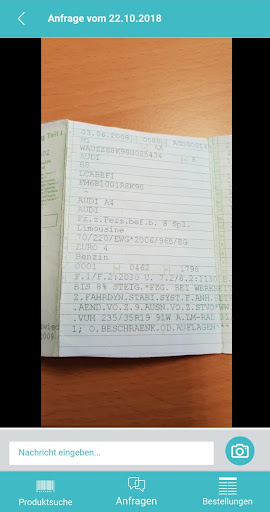 Anfrage vom 22.10.2018
g Teil I
03.06.2008 0588
M1 AA
WAUZZZ8K98U025434
AUDI
B8
LCABEF1
FM6B1001R8K90
-
AUDI A4
AUDI
Fz.z.Pers.bef.b. 8 Spl.
Limousine
70/220/EWG*2006/96G/EG
EURO 4
Benzin
0001 0462 1798
BIS 8% STEIG.*FZG. BEI WERKSEI
Z.FAHRDYN.STABI.SYST.F.ANH.BET
.AEND.VO.Z.9.AUSN.VO.Z.STVO*WW
.VUH 235/35R19 91W A.LM-RAD
1; O.BESCHRAENK.OD.AUFLAGEN***
2009
Nachricht eingeben...
Produktsuche
Anfragen
Bestellungen